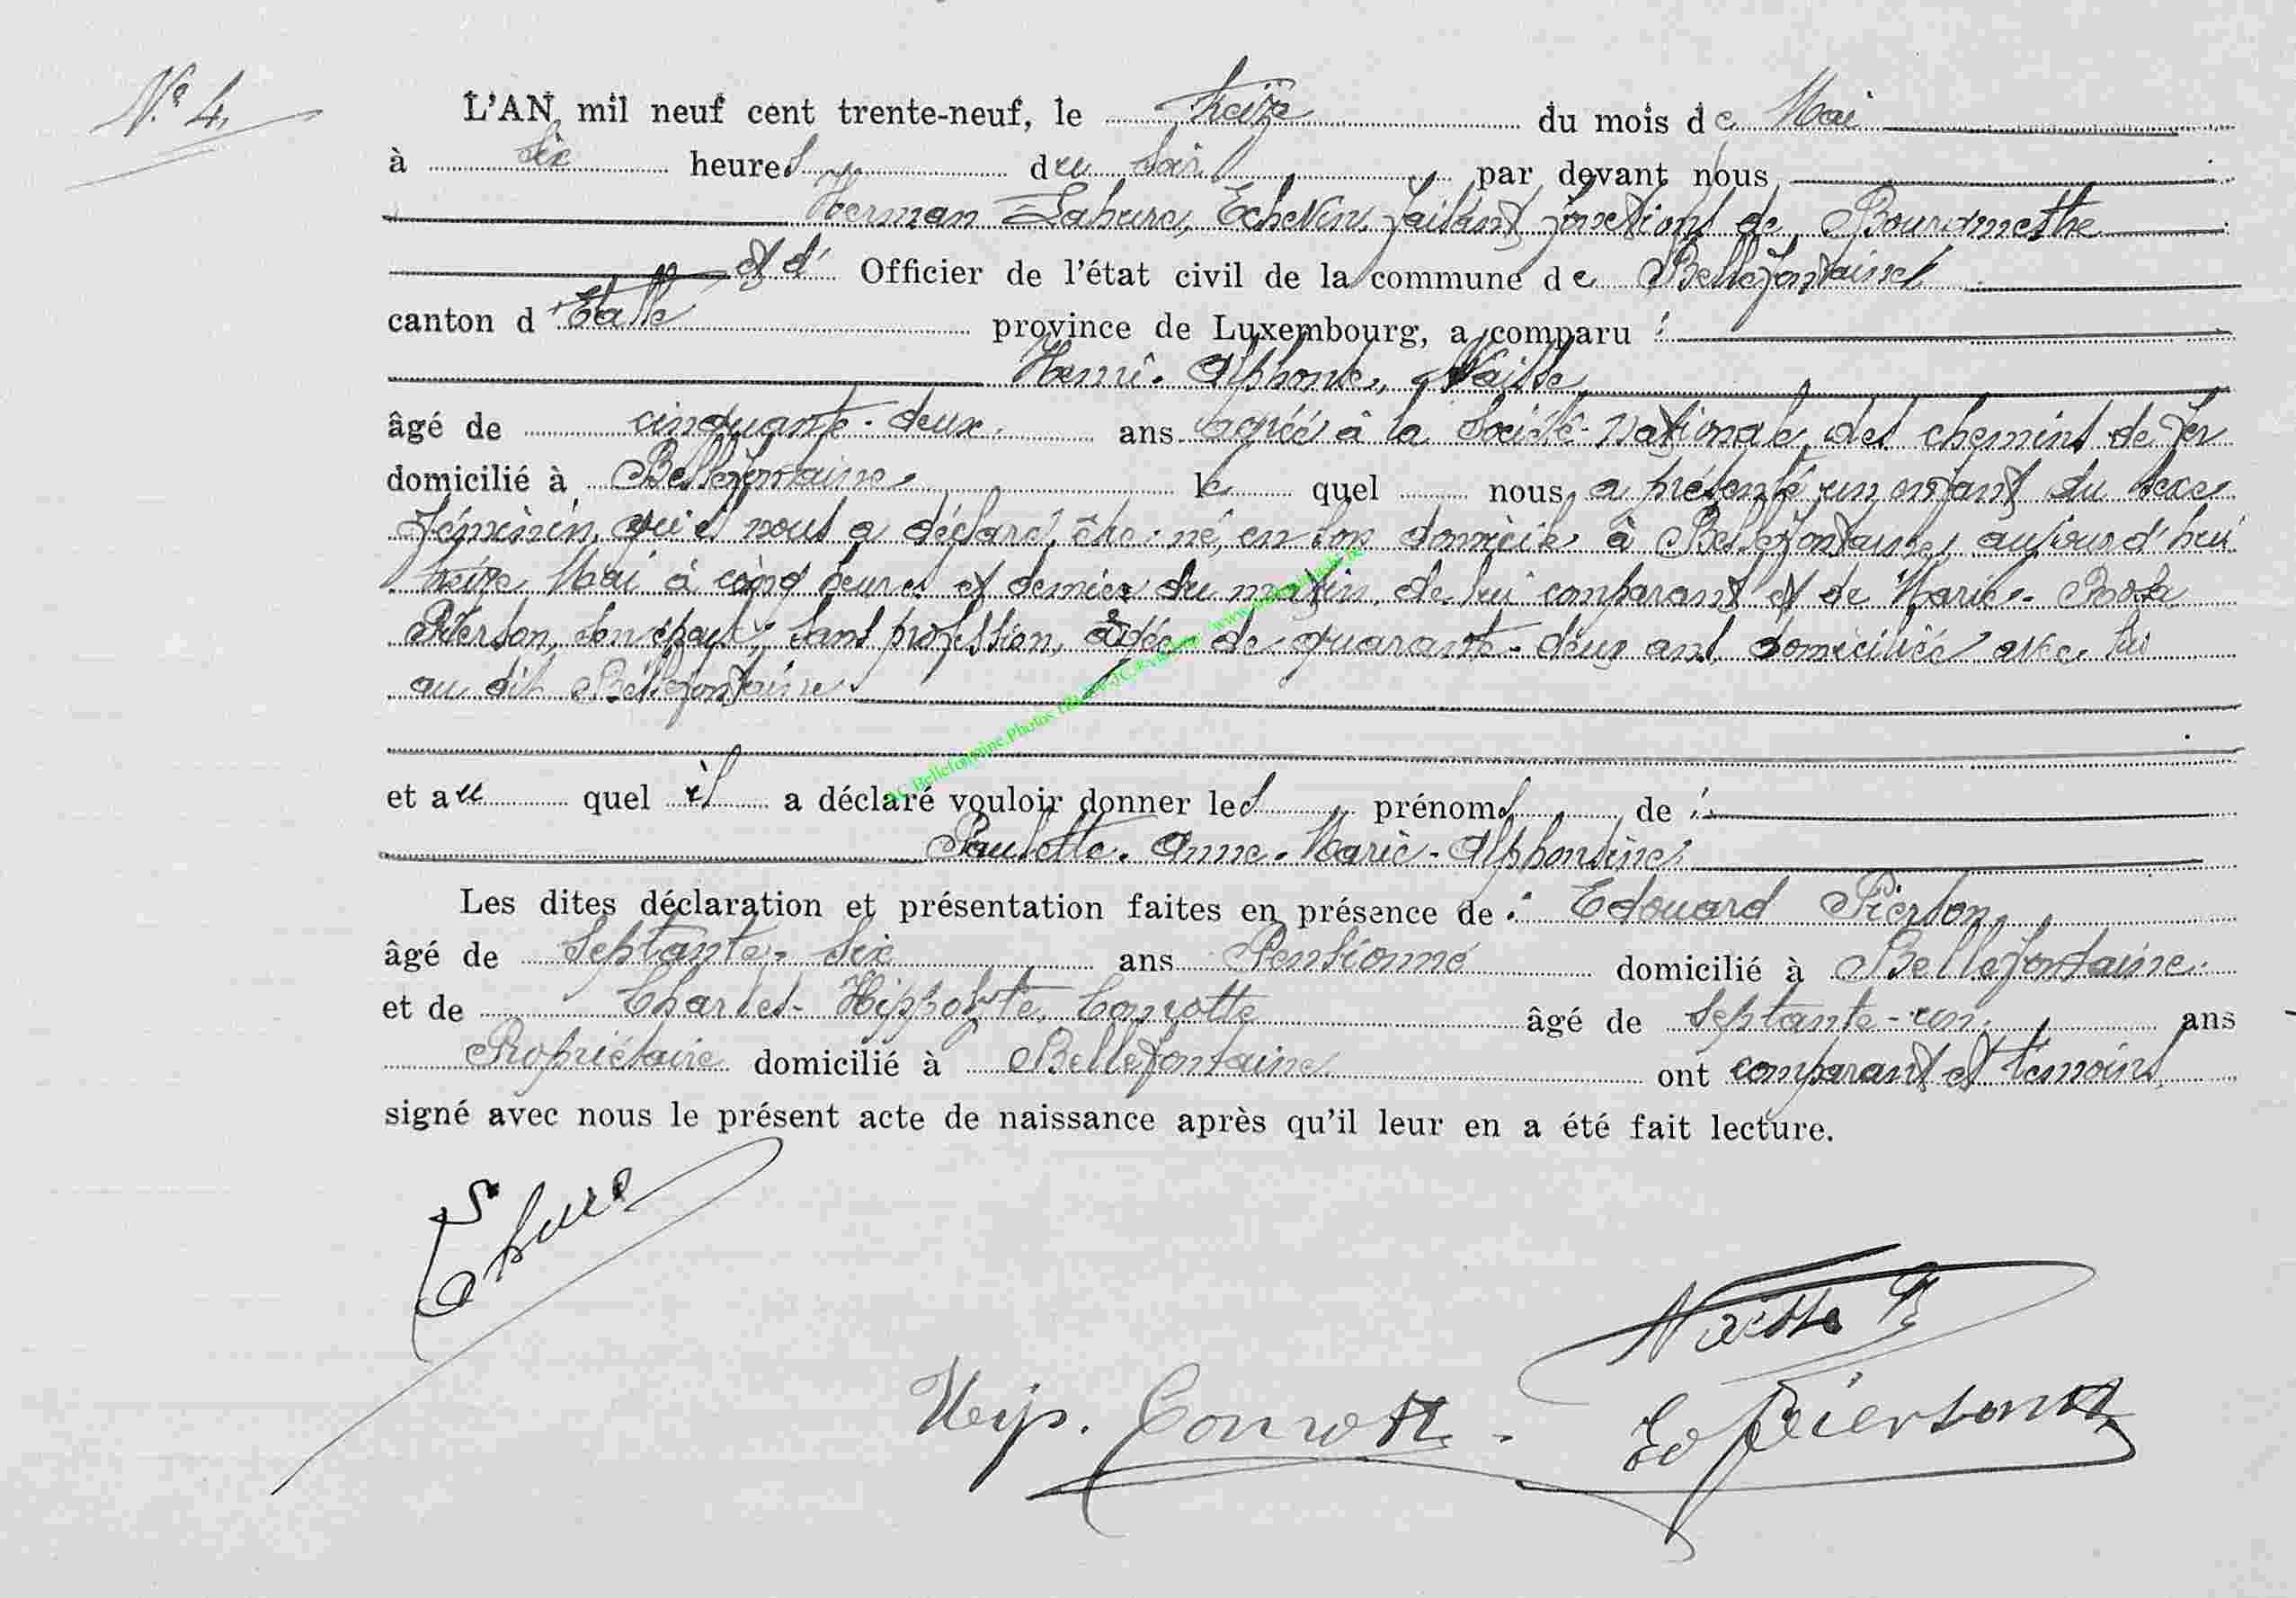 N.° 4.
L'AN mil neuf cent trente-neuf, le treize du mois de Mai
à six heures du soir par devant nous
Herman Lahure, Echevin, faisant fonctions de Bourgmestre
et d' Officier de l'état civil de la commune de Bellefontaine
canton d'Etalle province de Luxembourg, a comparu :
Henri - Alphonse, Naisse
âgé de cinquante-deux ans agréé à la Société Nationale des chemins de fer
domicilié à Bellefontaine le quel nous a présenté un enfant du sexe
féminin, qu'il nous a déclaré être né, en son domicile à Bellefontaine, aujourd'hui
treize Mai à cinq heures et demie du matin, de lui comparant et de Marie - Rosa
Pierson, son épouse, sans profession, âgée de quarante-deux ans, domiciliée avec lui
au dit Bellefontaine.
et au quel il a déclaré vouloir donner les prénoms de :
Paulette - Anne - Marie - Alphonsine.
Les dites déclaration et présentation faites en présence de : Edouard Pierson,
âgé de septante-six ans Pensionné domicilié à Bellefontaine.
et de Charles - Hippolyte, Conrotte âgé de septante-un ans
Propriétaire domicilié à Bellefontaine ont comparant et témoins
signé avec nous le présent acte de naissance après qu'il leur en a été fait lecture.
Lahure
Naisse
Hip. Conrotte
Ed Pierson